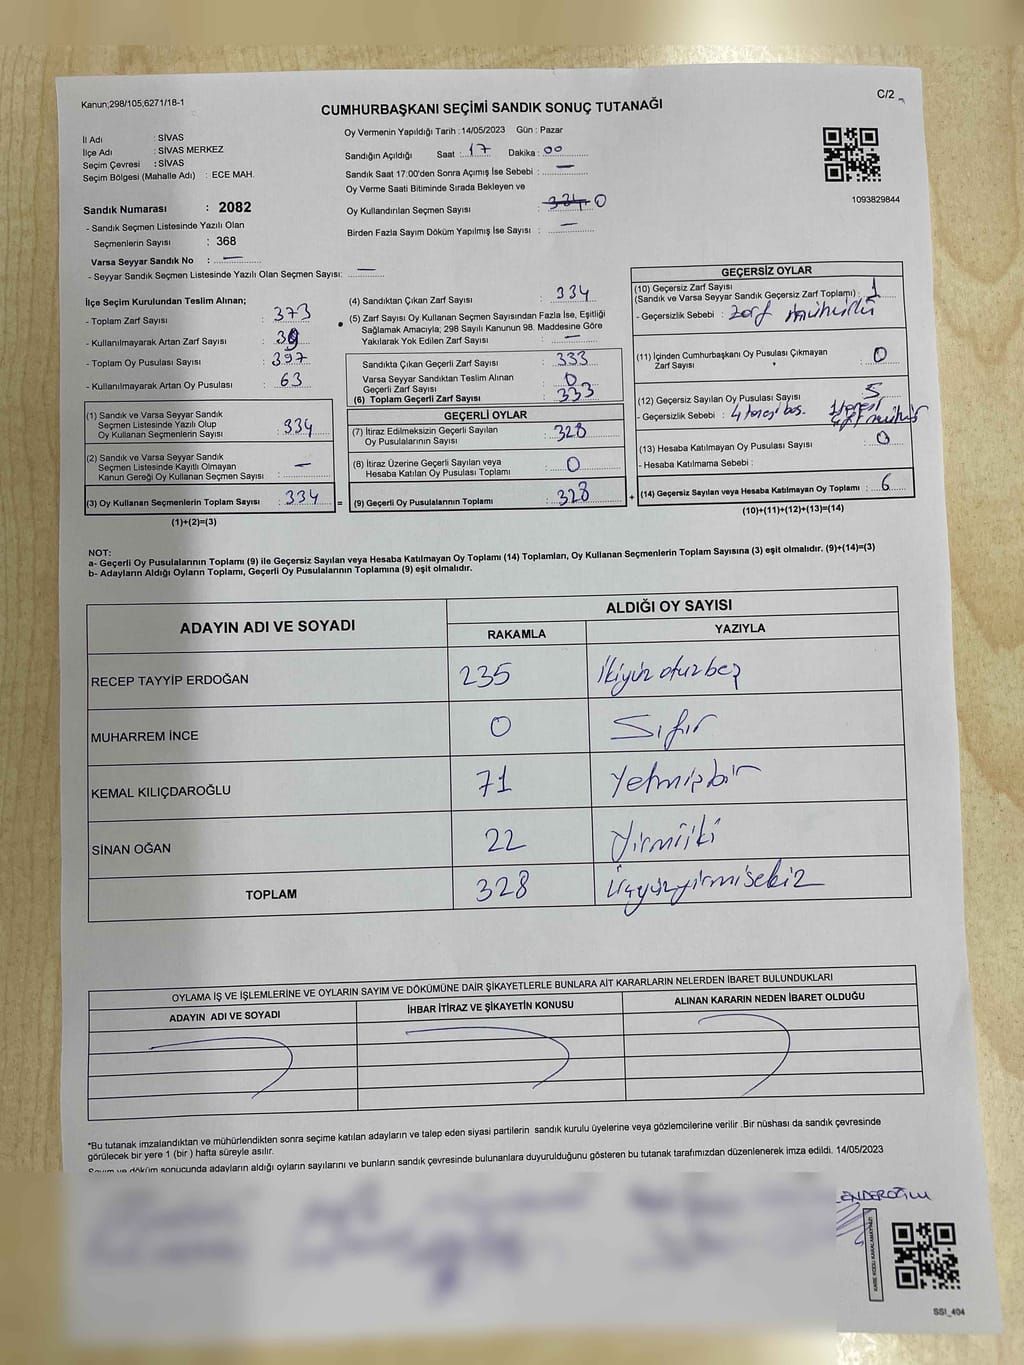 Kanun;298/105,6271/18-1
C/2
CUMHURBAŞKANI SEÇİMİ SANDIK SONUÇ TUTANAĞI
İl Adı : SİVAS
İlçe Adı : SİVAS MERKEZ
Seçim Çevresi : SİVAS
Seçim Bölgesi (Mahalle Adı) : ECE MAH.
Oy Vermenin Yapıldığı Tarih : 14/05/2023 Gün : Pazar
Sandığın Açıldığı Saat : 17 Dakika : 00
Sandık Saat 17:00'den Sonra Açımış İse Sebebi : —
Oy Verme Saati Bitiminde Sırada Bekleyen ve
Oy Kullandırılan Seçmen Sayısı : 0
Birden Fazla Sayım Döküm Yapılmış İse Sayısı : —
1093829844
Sandık Numarası : 2082
- Sandık Seçmen Listesinde Yazılı Olan
Seçmenlerin Sayısı : 368
Varsa Seyyar Sandık No : —
- Seyyar Sandık Seçmen Listesinde Yazılı Olan Seçmen Sayısı: —
İlçe Seçim Kurulundan Teslim Alınan;
- Toplam Zarf Sayısı : 373
- Kullanılmayarak Artan Zarf Sayısı : 39
- Toplam Oy Pusulası Sayısı : 397
- Kullanılmayarak Artan Oy Pusulası : 63
(1) Sandık ve Varsa Seyyar Sandık
Seçmen Listesinde Yazılı Olup
Oy Kullanan Seçmenlerin Sayısı : 334
(2) Sandık ve Varsa Seyyar Sandık
Seçmen Listesinde Kayıtlı Olmayan
Kanun Gereği Oy Kullanan Seçmen Sayısı : —
(3) Oy Kullanan Seçmenlerin Toplam Sayısı : 334 =
(1)+(2)=(3)
(4) Sandıktan Çıkan Zarf Sayısı : 334
(5) Zarf Sayısı Oy Kullanan Seçmen Sayısından Fazla İse, Eşitliği
Sağlamak Amacıyla; 298 Sayılı Kanunun 98. Maddesine Göre
Yakılarak Yok Edilen Zarf Sayısı : —
Sandıkta Çıkan Geçerli Zarf Sayısı : 333
Varsa Seyyar Sandıktan Teslim Alınan
Geçerli Zarf Sayısı : 0
(6) Toplam Geçerli Zarf Sayısı : 333
GEÇERLİ OYLAR
(7) İtiraz Edilmeksizin Geçerli Sayılan
Oy Pusulalarının Sayısı : 328
(8) İtiraz Üzerine Geçerli Sayılan veya
Hesaba Katılan Oy Pusulası Toplamı : 0
(9) Geçerli Oy Pusulalarının Toplamı : 328 +
GEÇERSİZ OYLAR
(10) Geçersiz Zarf Sayısı
(Sandık ve Varsa Seyyar Sandık Geçersiz Zarf Toplamı) : 1
- Geçersizlik Sebebi : Zarf mühürlü
(11) İçinden Cumhurbaşkanı Oy Pusulası Çıkmayan
Zarf Sayısı : 0
(12) Geçersiz Sayılan Oy Pusulası Sayısı : 5
- Geçersizlik Sebebi : 4 tanesi boş. 1 tanesi
(13) Hesaba Katılmayan Oy Pusulası Sayısı : 0
- Hesaba Katılmama Sebebi :
(14) Geçersiz Sayılan veya Hesaba Katılmayan Oy Toplamı : 6
(10)+(11)+(12)+(13)=(14)
NOT:
a- Geçerli Oy Pusulalarının Toplamı (9) ile Geçersiz Sayılan veya Hesaba Katılmayan Oy Toplamı (14) Toplamları, Oy Kullanan Seçmenlerin Toplam Sayısına (3) eşit olmalıdır. (9)+(14)=(3)
b- Adayların Aldığı Oyların Toplamı, Geçerli Oy Pusulalarının Toplamına (9) eşit olmalıdır.
ADAYIN ADI VE SOYADI
ALDIĞI OY SAYISI
RAKAMLA YAZIYLA
RECEP TAYYİP ERDOĞAN 235 İkiyüz otuzbeş
MUHARREM İNCE 0 Sıfır
KEMAL KILIÇDAROĞLU 71 Yetmişbir
SİNAN OĞAN 22 Yirmiiki
TOPLAM 328 Üçyüzyirmisekiz
OYLAMA İŞ VE İŞLEMLERİNE VE OYLARIN SAYIM VE DÖKÜMÜNE DAİR ŞİKAYETLERLE BUNLARA AİT KARARLARIN NELERDEN İBARET BULUNDUKLARI
ADAYIN ADI VE SOYADI İHBAR İTİRAZ VE ŞİKAYETİN KONUSU ALINAN KARARIN NEDEN İBARET OLDUĞU
*Bu tutanak imzalandıktan ve mühürlendikten sonra seçime katılan adayların ve talep eden siyasi partilerin sandık kurulu üyelerine veya gözlemcilerine verilir .Bir nüshası da sandık çevresinde
görülecek bir yere 1 (bir ) hafta süreyle asılır.
Sayım ve döküm sonucunda adayların aldığı oyların sayılarını ve bunların sandık çevresinde bulunanlara duyurulduğunu gösteren bu tutanak tarafımızdan düzenlenerek imza edildi. 14/05/2023
ENDEROĞLU
KARE KODU KARALAMAYINIZ!
SSI_404